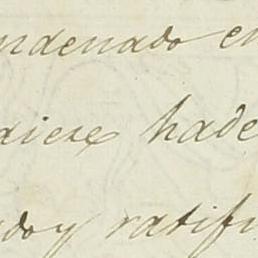 ndenado en
diese hade
ado y ratifi